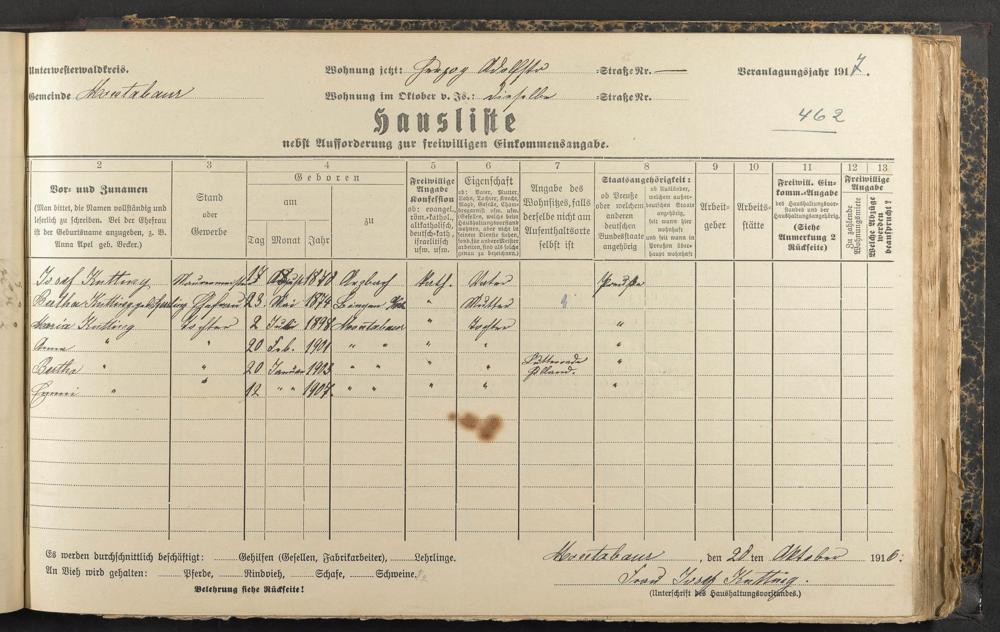 Unterwesterwaldkreis. Wohnung jetzt: Herzog Adolfstr Straße Nr. — Veranlagungsjahr 1917.
Gemeinde Montabaur Wohnung im Oktober v. Js.: dieselbe Straße Nr.
462
Hausliste
nebst Aufforderung zur freiwilligen Einkommensangabe.
2 3 4 5 6 7 8 9 10 11 12 13
Vor- und Zunamen
(Man bittet, die Namen vollständig und
leserlich zu schreiben. Bei der Ehefrau
ist der Geburtsname anzugeben, z. B.
Anna Apel geb. Becker.)
Stand
oder
Gewerbe
Geboren
am
zu
Tag Monat Jahr
Freiwillige
Angabe
Konfession
ob: evangel.,
röm.-kathol.,
altkatholisch,
deutsch-kath.,
israelitisch
usw. usw.
Eigenschaft
ob: Vater, Mutter,
Angabe des
Wohnsitzes, falls
derselbe nicht am
Aufenthaltsorte
selbst ist
Staatsangehörigkeit:
ob Preuße
oder welchem
anderen
deutschen
Bundesstaate
angehörig
ob Ausländer,
welchem auswärtigen
Staate
angehörig,
seit wann hier
wohnhaft
und seit wann in
Preußen überhaupt
wohnhaft
Arbeit-
geber
Arbeits-
stätte
Freiwill. Ein-
komm.-Angabe
des Haushaltungsvor-
standes und der
Haushaltungsangehörig.
(Siehe
Anmerkung 2
Rückseite)
Freiwillige
Angabe
Zu zahlende
Wohnungsmiete
Welche Abzüge
werden
beansprucht?
Josef Kutting Maurermeister 17 1870 Arzbach Kath. Vater Preuße
Bertha Kutting geb. Ehefrau 23 Mai 1874 " Mutter
Maria Kutting Tochter 2 Juli 1898 Montabaur " Tochter "
Anna " " 20 Feb. 1901 " " " " "
Bertha " " 20 Januar 1903 " " " "
Emmi " " 12 " " 1907. " " " " "
Es werden durchschnittlich beschäftigt: Gehilfen (Gesellen, Fabrikarbeiter), Lehrlinge.
An Vieh wird gehalten: Pferde, Rindvieh, Schafe, Schweine.
Belehrung siehe Rückseite!
Montabaur, den 28 ten Oktober 1916.
Frau Josef Kutting.
(Unterschrift des Haushaltungsvorstandes.)